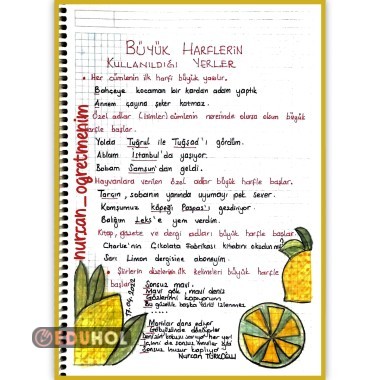 BÜYÜK HARFLERİN
KULLANILDIĞI YERLER
• Her cümlenin ilk harfi büyük yazılır.
Bahçeye kocaman bir kardan adam yaptık
Annem çayına şeker katmaz.
Özel adlar (isimler) cümlenin neresinde olursa olsun büyük
harfle başlar.
Yolda Tuğrul ile Tuğsad'ı gördüm.
Ablam İstanbul'da yaşıyor.
Babam Samsun'dan geldi.
Hayvanlara verilen özel adlar büyük harfle başlar.
Tarçın, sobanın yanında uyumayı çok sever.
Komşumuz köpeği Paspas'ı gezdiriyor.
Balığım Leks'e yem verdim.
Kitap, gazete ve dergi adları büyük harfle başlar.
Charlie'nin Çikolata Fabrikası kitabını okudun
Sarı Limon dergisine aboneyim.
• Şiirlerin dizelerinin ilk kelimeleri büyük harfle
başlar.
Sonsuz mavi.
Mavi gök, mavi deniz
Gözlerimi kapıyorum
Bu güzellik başka türlü
.....
Martılar dans ediyor
Gökyüzünde
her yer
Sonsuz huzur kaplıyor
Nurcan TÜRKOĞLU
17.04.2022
nurcan_ogretmenim
EDUHOL